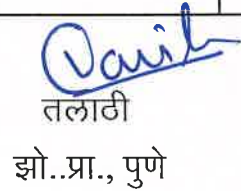 तलाठी
झो..प्रा., पुणे